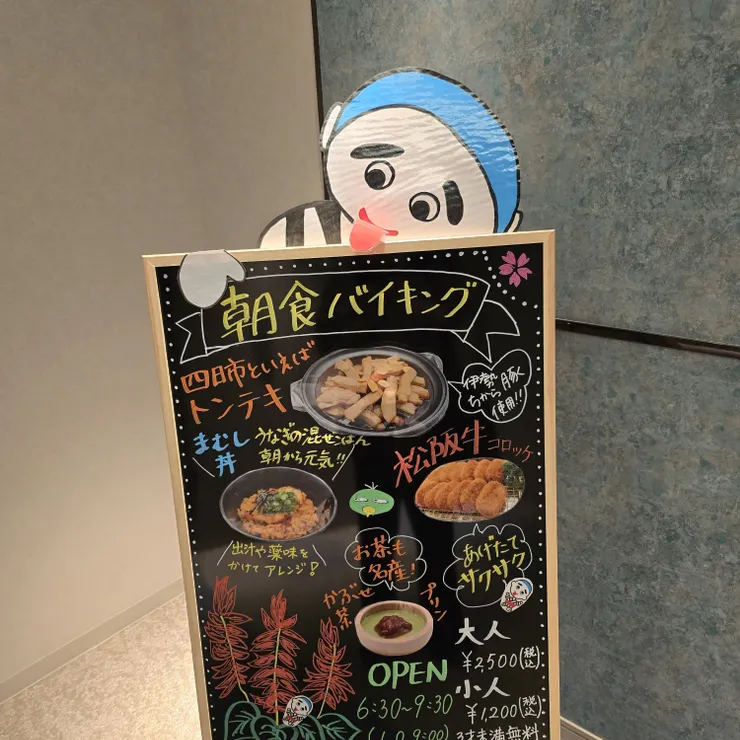 朝食バイキング
四日市といえば
トンテキ
伊勢
ちから豚
使用!!
まむし
丼
うなぎの混ぜごはん
朝から元気!!
松阪牛コロッケ
出汁や薬味を
かけてアレンジ!
お茶も
名産!
かぶせ
茶
プリン
あげたて
サクサク
OPEN
6:30~9:30
大人
¥2,500(税込)
小人
¥1,200(税込)
3さ未満無料